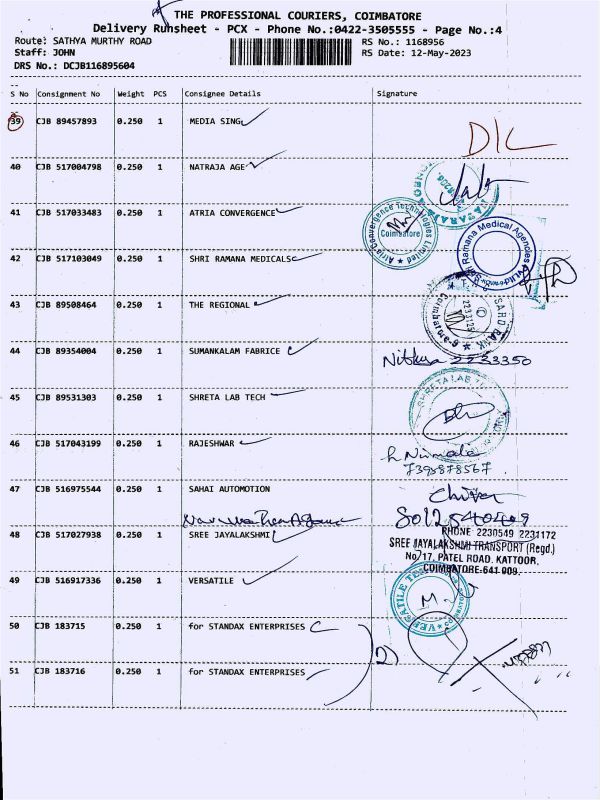 THE PROFESSIONAL COURIERS, COIMBATORE
Delivery Runsheet - PCX - Phone No.:0422-3505555 - Page No.:4
Route: SATHYA MURTHY ROAD
RS No.: 1168956
Staff: JOHN
RS Date: 12-May-2023
DRS No.: DCJB116895604
S No Consignment No Weight PCS Consignee Details Signature
39 CJB 89457893 0.250 1 MEDIA SING
40 CJB 517004798 0.250 1 NATRAJA AGE
41 CJB 517033483 0.250 1 ATRIA CONVERGENCE
Atria Convergence Technologies Limited
Coimbatore
42 CJB 517103049 0.250 1 SHRI RAMANA MEDICALS
Ramana Medical Agencies
43 CJB 89508464 0.250 1 THE REGIONAL
44 CJB 89354004 0.250 1 SUMANKALAM FABRICE
2233350
45 CJB 89531303 0.250 1 SHRETA LAB TECH
SHRETA LAB
46 CJB 517043199 0.250 1 RAJESHWAR
Nirmala
7398878567
47 CJB 516975544 0.250 1 SAHAI AUTOMOTION
48 CJB 517027938 0.250 1 SREE JAYALAKSHMI
PHONE 2230549 2231172
SREE JAYALAKSHMI TRANSPORT (Regd.)
No.17, PATEL ROAD, KATTOOR,
COIMBATORE-641 009.
49 CJB 516917336 0.250 1 VERSATILE
50 CJB 183715 0.250 1 for STANDAX ENTERPRISES
2)
51 CJB 183716 0.250 1 for STANDAX ENTERPRISES